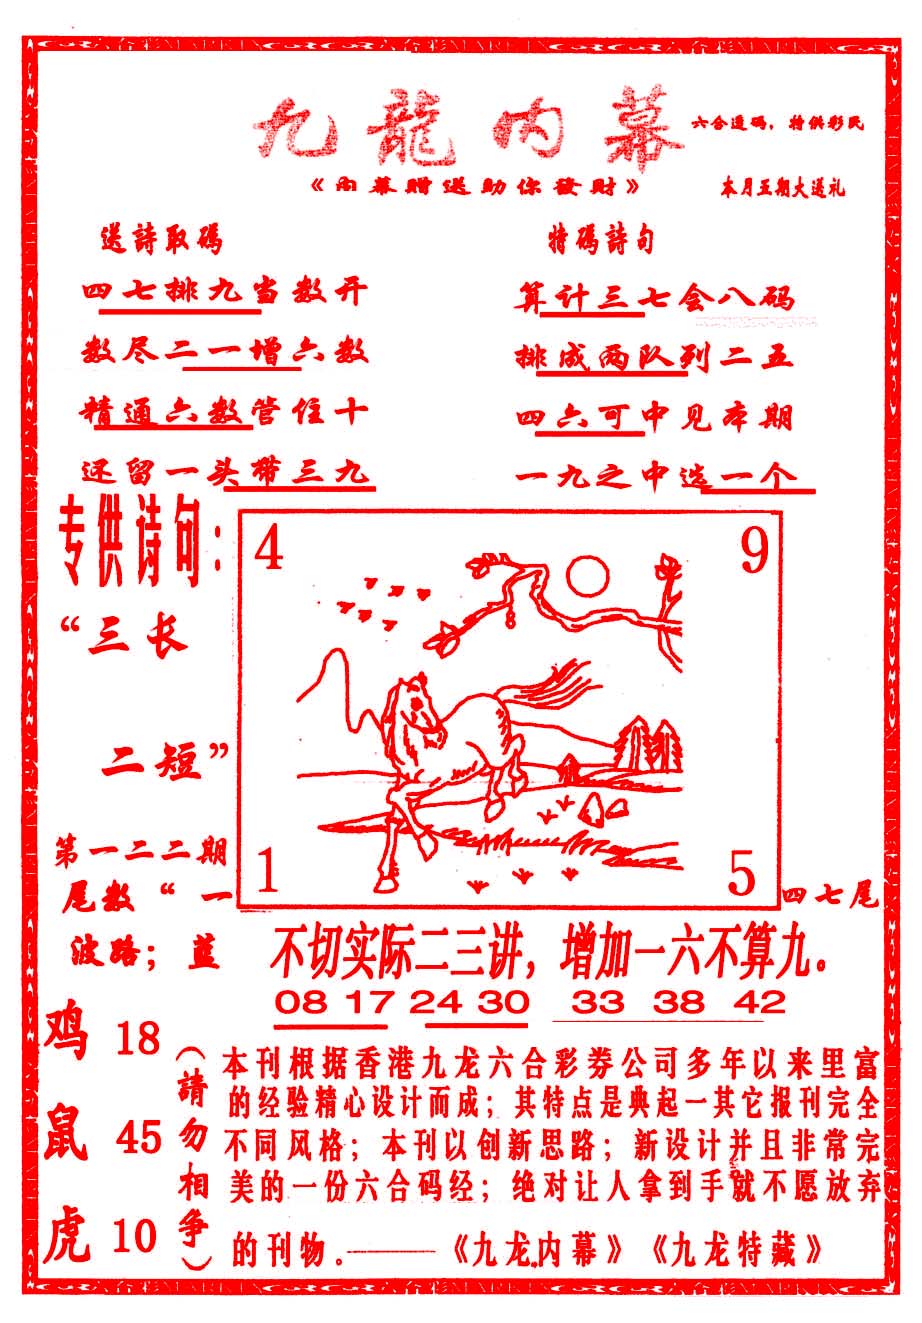 九龍内幕
六合透码，特供彩民
《内幕赠送助你發財》
本月五期大送礼
送詩取碼
四七排九当数开
数尽二一增六数
精通六数管住十
还留一头带三九
特碼詩句
算计三七会八码
排成两队列二五
四六可中见本期
一九之中选一个
专供诗句：
“三长
二短”
4
9
1
5
第一二二期
尾数“一
四七尾
波路；蓝
不切实际二三讲，增加一六不算九。
08 17 24 30 33 38 42
鸡 18
鼠 45
虎 10
（請勿相争）
本刊根据香港九龙六合彩券公司多年以来里富
的经验精心设计而成；其特点是典起一其它报刊完全
不同风格；本刊以创新思路；新设计并且非常完
美的一份六合码经；绝对让人拿到手就不愿放弃
的刊物。——《九龙内幕》《九龙特藏》